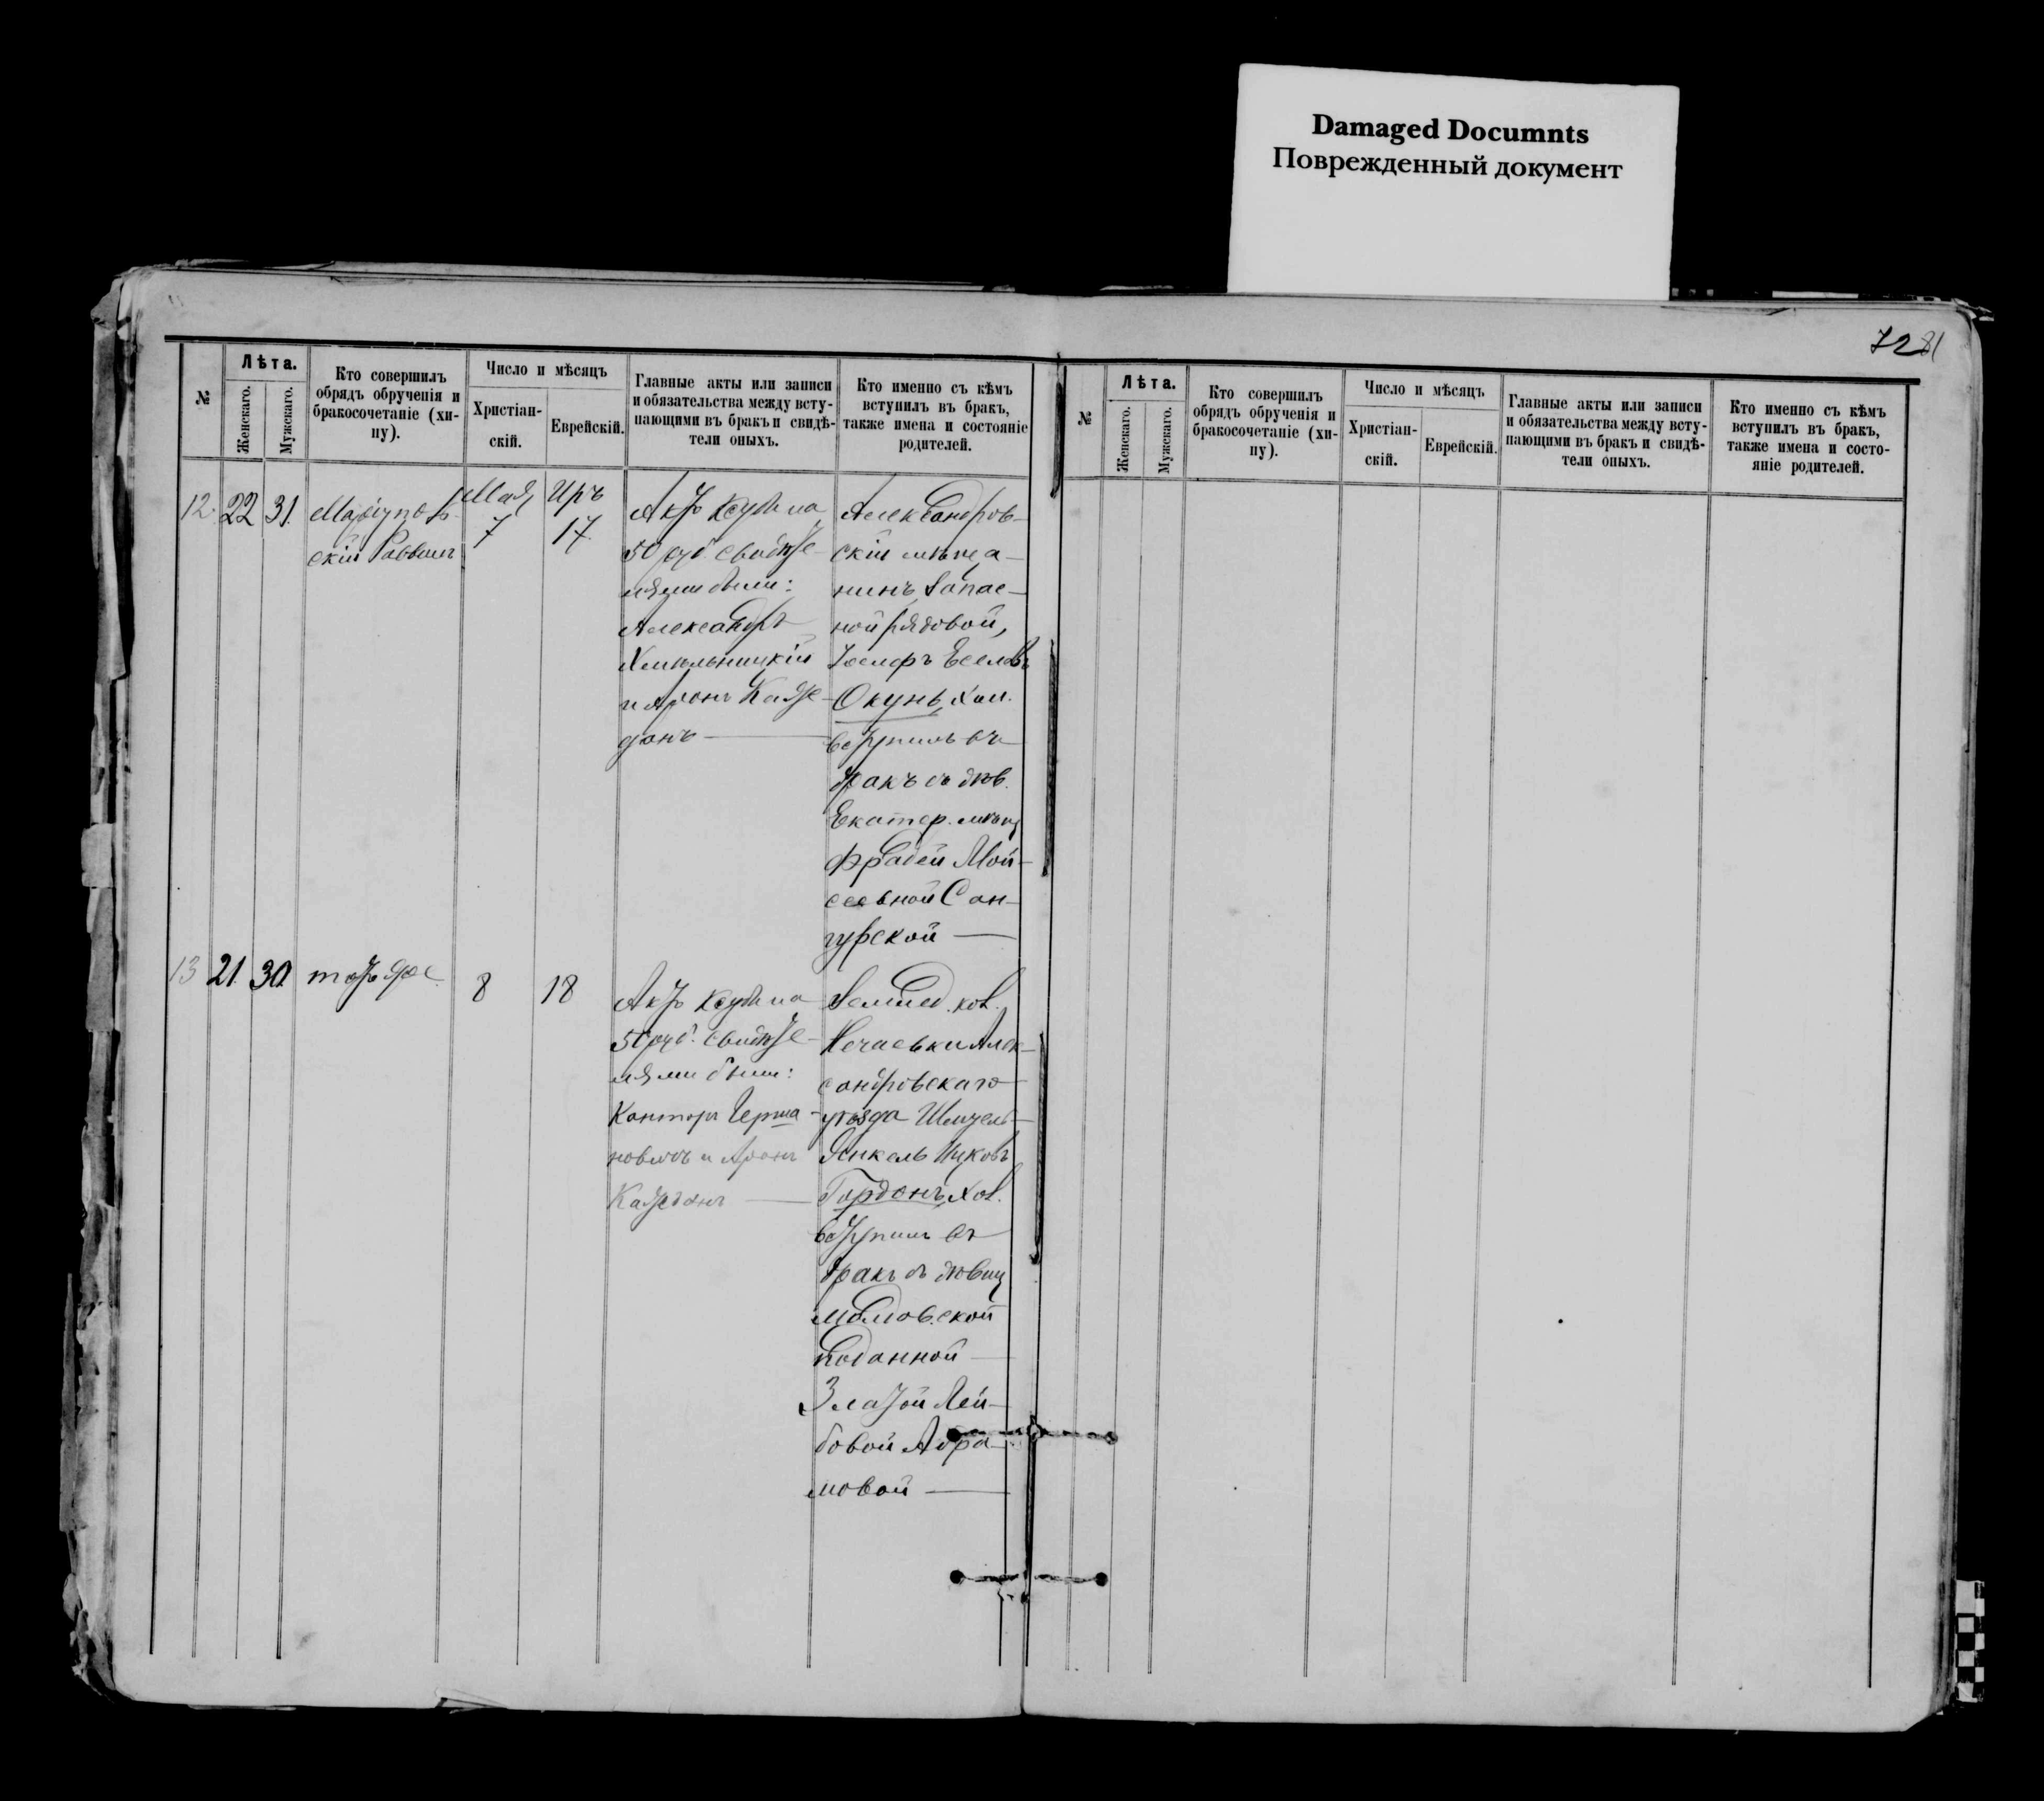 Damaged Documnts
Поврежденный документ
72 81
№
Лѣта.
Женскаго.
Мужскаго.
Кто совершилъ
обрядъ обрученія и
бракосочетаніе (хи-
пу).
Число и мѣсяцъ
Христіан-
скій.
Еврейскій.
Главные акты или записи
и обязательства между всту-
пающими въ бракъ и свидѣ-
тели оныхъ.
Кто именно съ кѣмъ
вступилъ въ бракъ,
также имена и состояніе
родителей.
12. 22 31.
Маріуполь-
скій Раввинъ
Мая
7
Иръ
17
Актъ Ксуба на
50 руб. свидѣте-
лями были:
Александръ
Хмельницкій
и Аронъ Кальфе-
донъ
Александров-
скій мѣща-
нинъ Запас-
ной рядовой,
Іосифъ Еселевъ
Окунь, хол.
вступилъ въ
бракъ съ дѣв.
Екатер. мѣщ
Фрадей Мой-
сеевной Сан-
гурской
13 21. 30.
тотъ же
8
18
Актъ Ксуба на
50 руб. свидѣте-
лями были:
Канторъ Герша
новичъ и Аронъ
Землед. кол.
Нечаевки Алек-
сандровскаго
уѣзда Шмуель
Янкель Ицковъ
Гордонъ, хол.
вступилъ въ
бракъ съ дѣвиц
Молдовской
подданной
Златой Лей-
бовой Абра-
мовой
№
Лѣта.
Женскаго.
Мужскаго.
Кто совершилъ
обрядъ обрученія и
бракосочетаніе (хи-
пу).
Число и мѣсяцъ
Христіан-
скій.
Еврейскій.
Главные акты или записи
и обязательства между всту-
пающими въ бракъ и свидѣ-
тели оныхъ.
Кто именно съ кѣмъ
вступилъ въ бракъ,
также имена и состо-
яніе родителей.